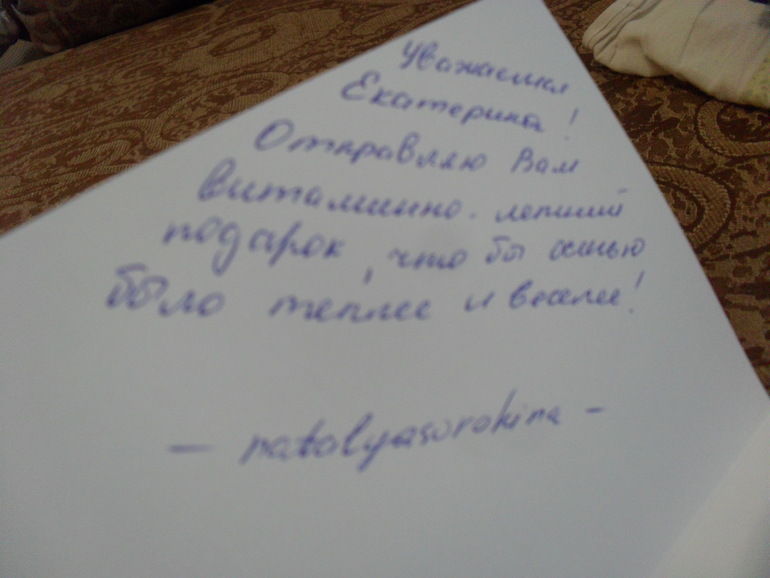 Уважаемая
Екатерина!
Отправляю Вам
витаминно-летний
подарок, что бы осенью
было теплее и веселее!
— natalyasorokina —